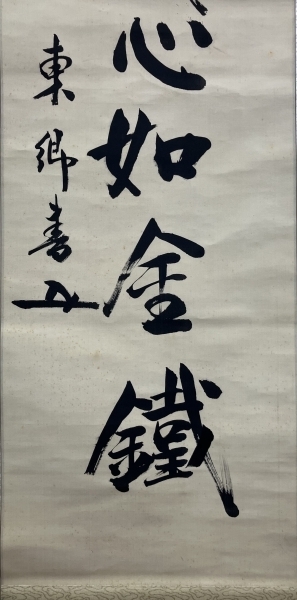 心如金鐵
東郷書